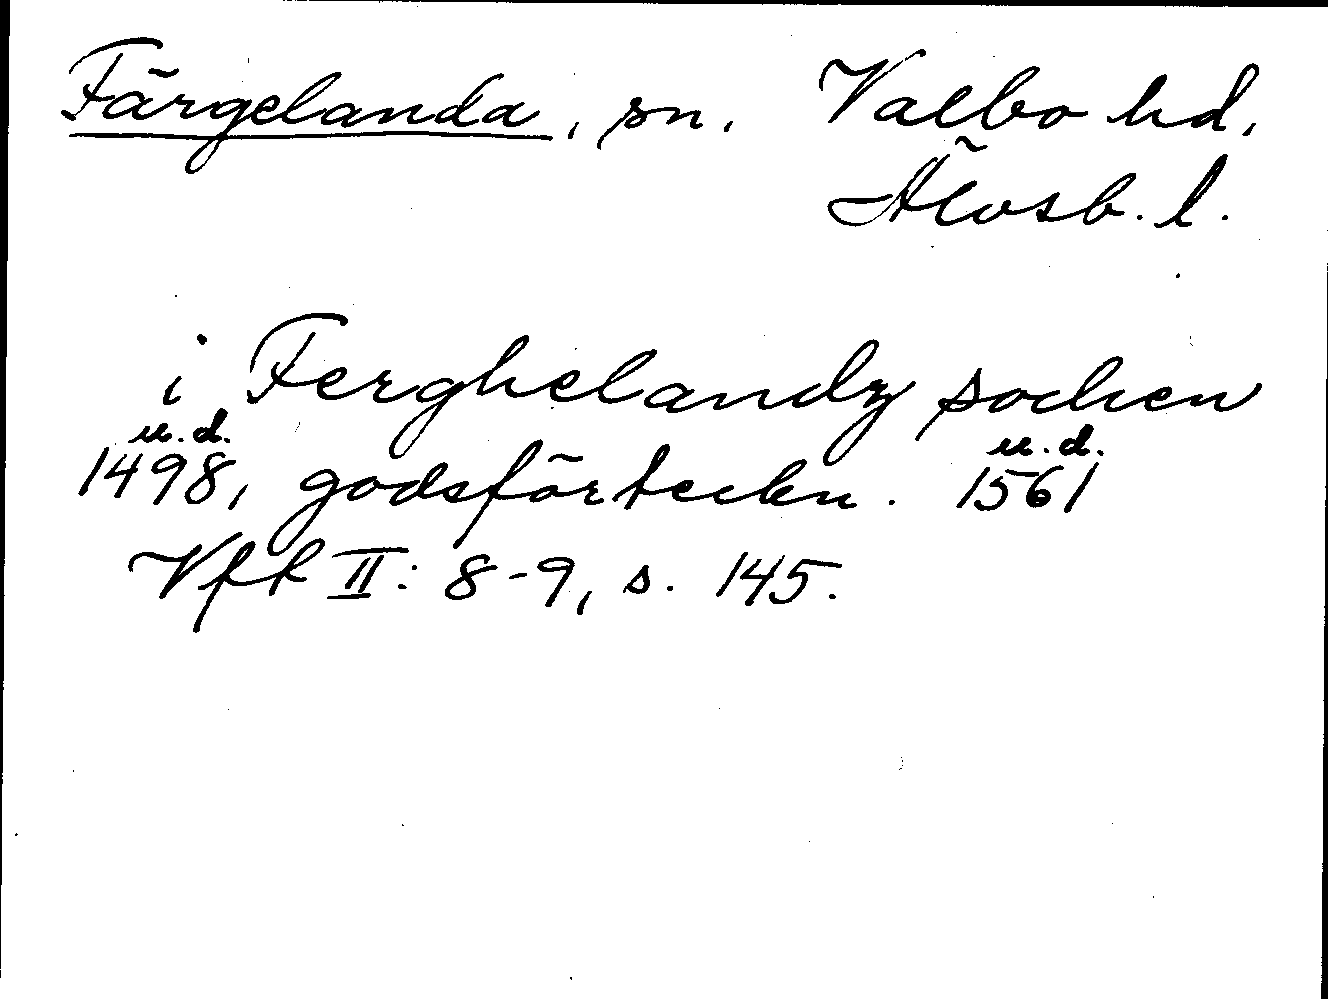 Färgelanda, sn. Valbo hd,
Älvsb. l.
i Ferghelandz sochen
u.d. u.d.
1498, godsförteckn. 1561
Vfk II: 8-9, s. 145.